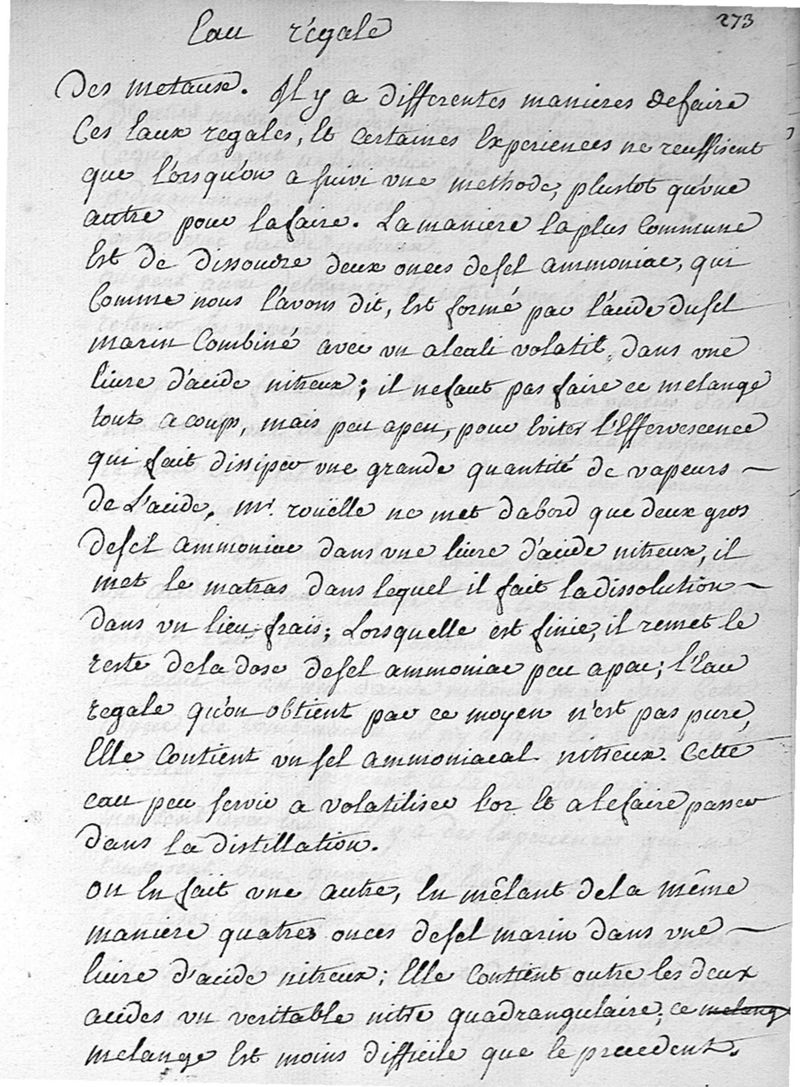 273
Eau régale
Des metaux. Il y a differentes manieres de faire
ces Eaux regales, Et certaines Experiences ne reussissent
que lorsqu'on a suivi une methode, plustot qu'une
autre pour la faire. La maniere la plus commune
Est de dissoudre deux onces de sel ammoniac, qui
comme nous l'avons dit, Est formé par l'acide du sel
marin combiné avec un alcali volatil, dans une
livre d'acide nitreux; il ne faut pas faire ce melange
tout a coup, mais peu a peu, pour Eviter l'Effervescence
qui fait dissiper une grande quantité de vapeurs —
de L'acide. mr. rouëlle ne met dabord que deux gros
de sel ammoniac dans une livre d'acide nitreux, il
met le matras dans lequel il fait la dissolution —
dans un lieu frais; Lorsquelle est finie, il remet le
reste de la dose de sel ammoniac peu a peu; l'Eau
regale qu'on obtient par ce moyen n'est pas pure,
Elle contient un sel ammoniacal nitreux. Cette
eau peu servir a volatiliser l'or Et a le faire passer
dans la distillation.
on En fait une autre, En mêlant de la même
maniere quatres onces de sel marin dans une —
livre d'acide nitreux; Elle contient outre les deux
acides un veritable nitre quadrangulaire; ce melang
melange Est moins difficile que le precedent.